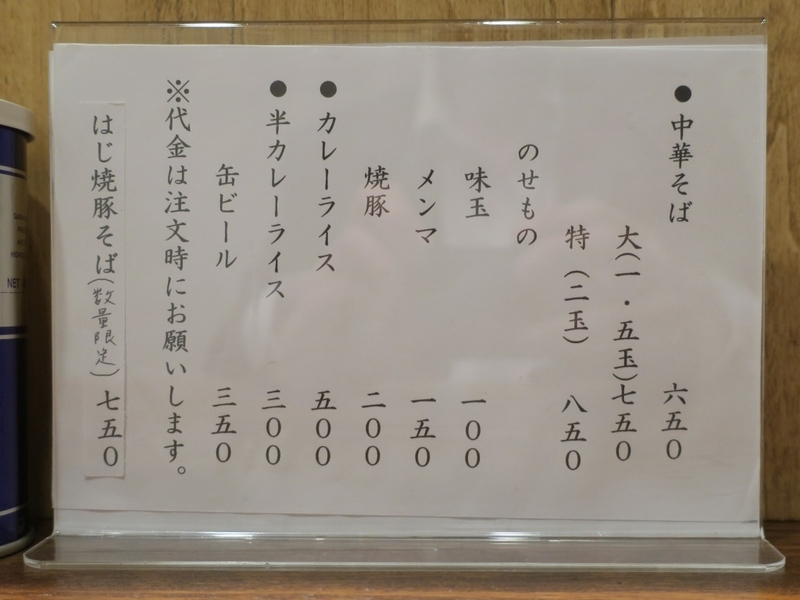 ●中華そば 六五〇
大(一・五玉)七五〇
特(二玉) 八五〇
のせもの
味玉 一〇〇
メンマ 一五〇
焼豚 二〇〇
●カレーライス 五〇〇
●半カレーライス 三〇〇
缶ビール 三五〇
※代金は注文時にお願いします。
はじ焼豚そば(数量限定) 七五〇
NET